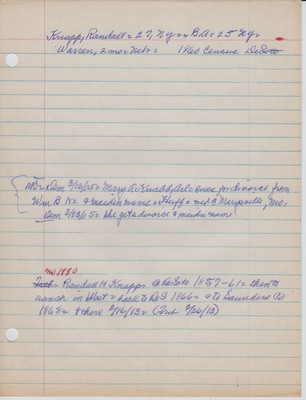 Knapp, Randall = 27, Ny = B A = 25 Ny =
Warren, 2 mo = Nebr = 1860 Census
Dem 3/16/05 = Mary A. Knab by Asl = sues for divorce from
Wm B K = maiden name = Huff = md @ Marysville, Mo.
Dem 2/23/05 = she gets divorce & maiden name
no 1880
Randall H Knapp = 1857-61 = then to
ranch in West = back to 1866 = & to Saunders Co
1868 = & there 2/16/13 = (Trib 2/26/13)